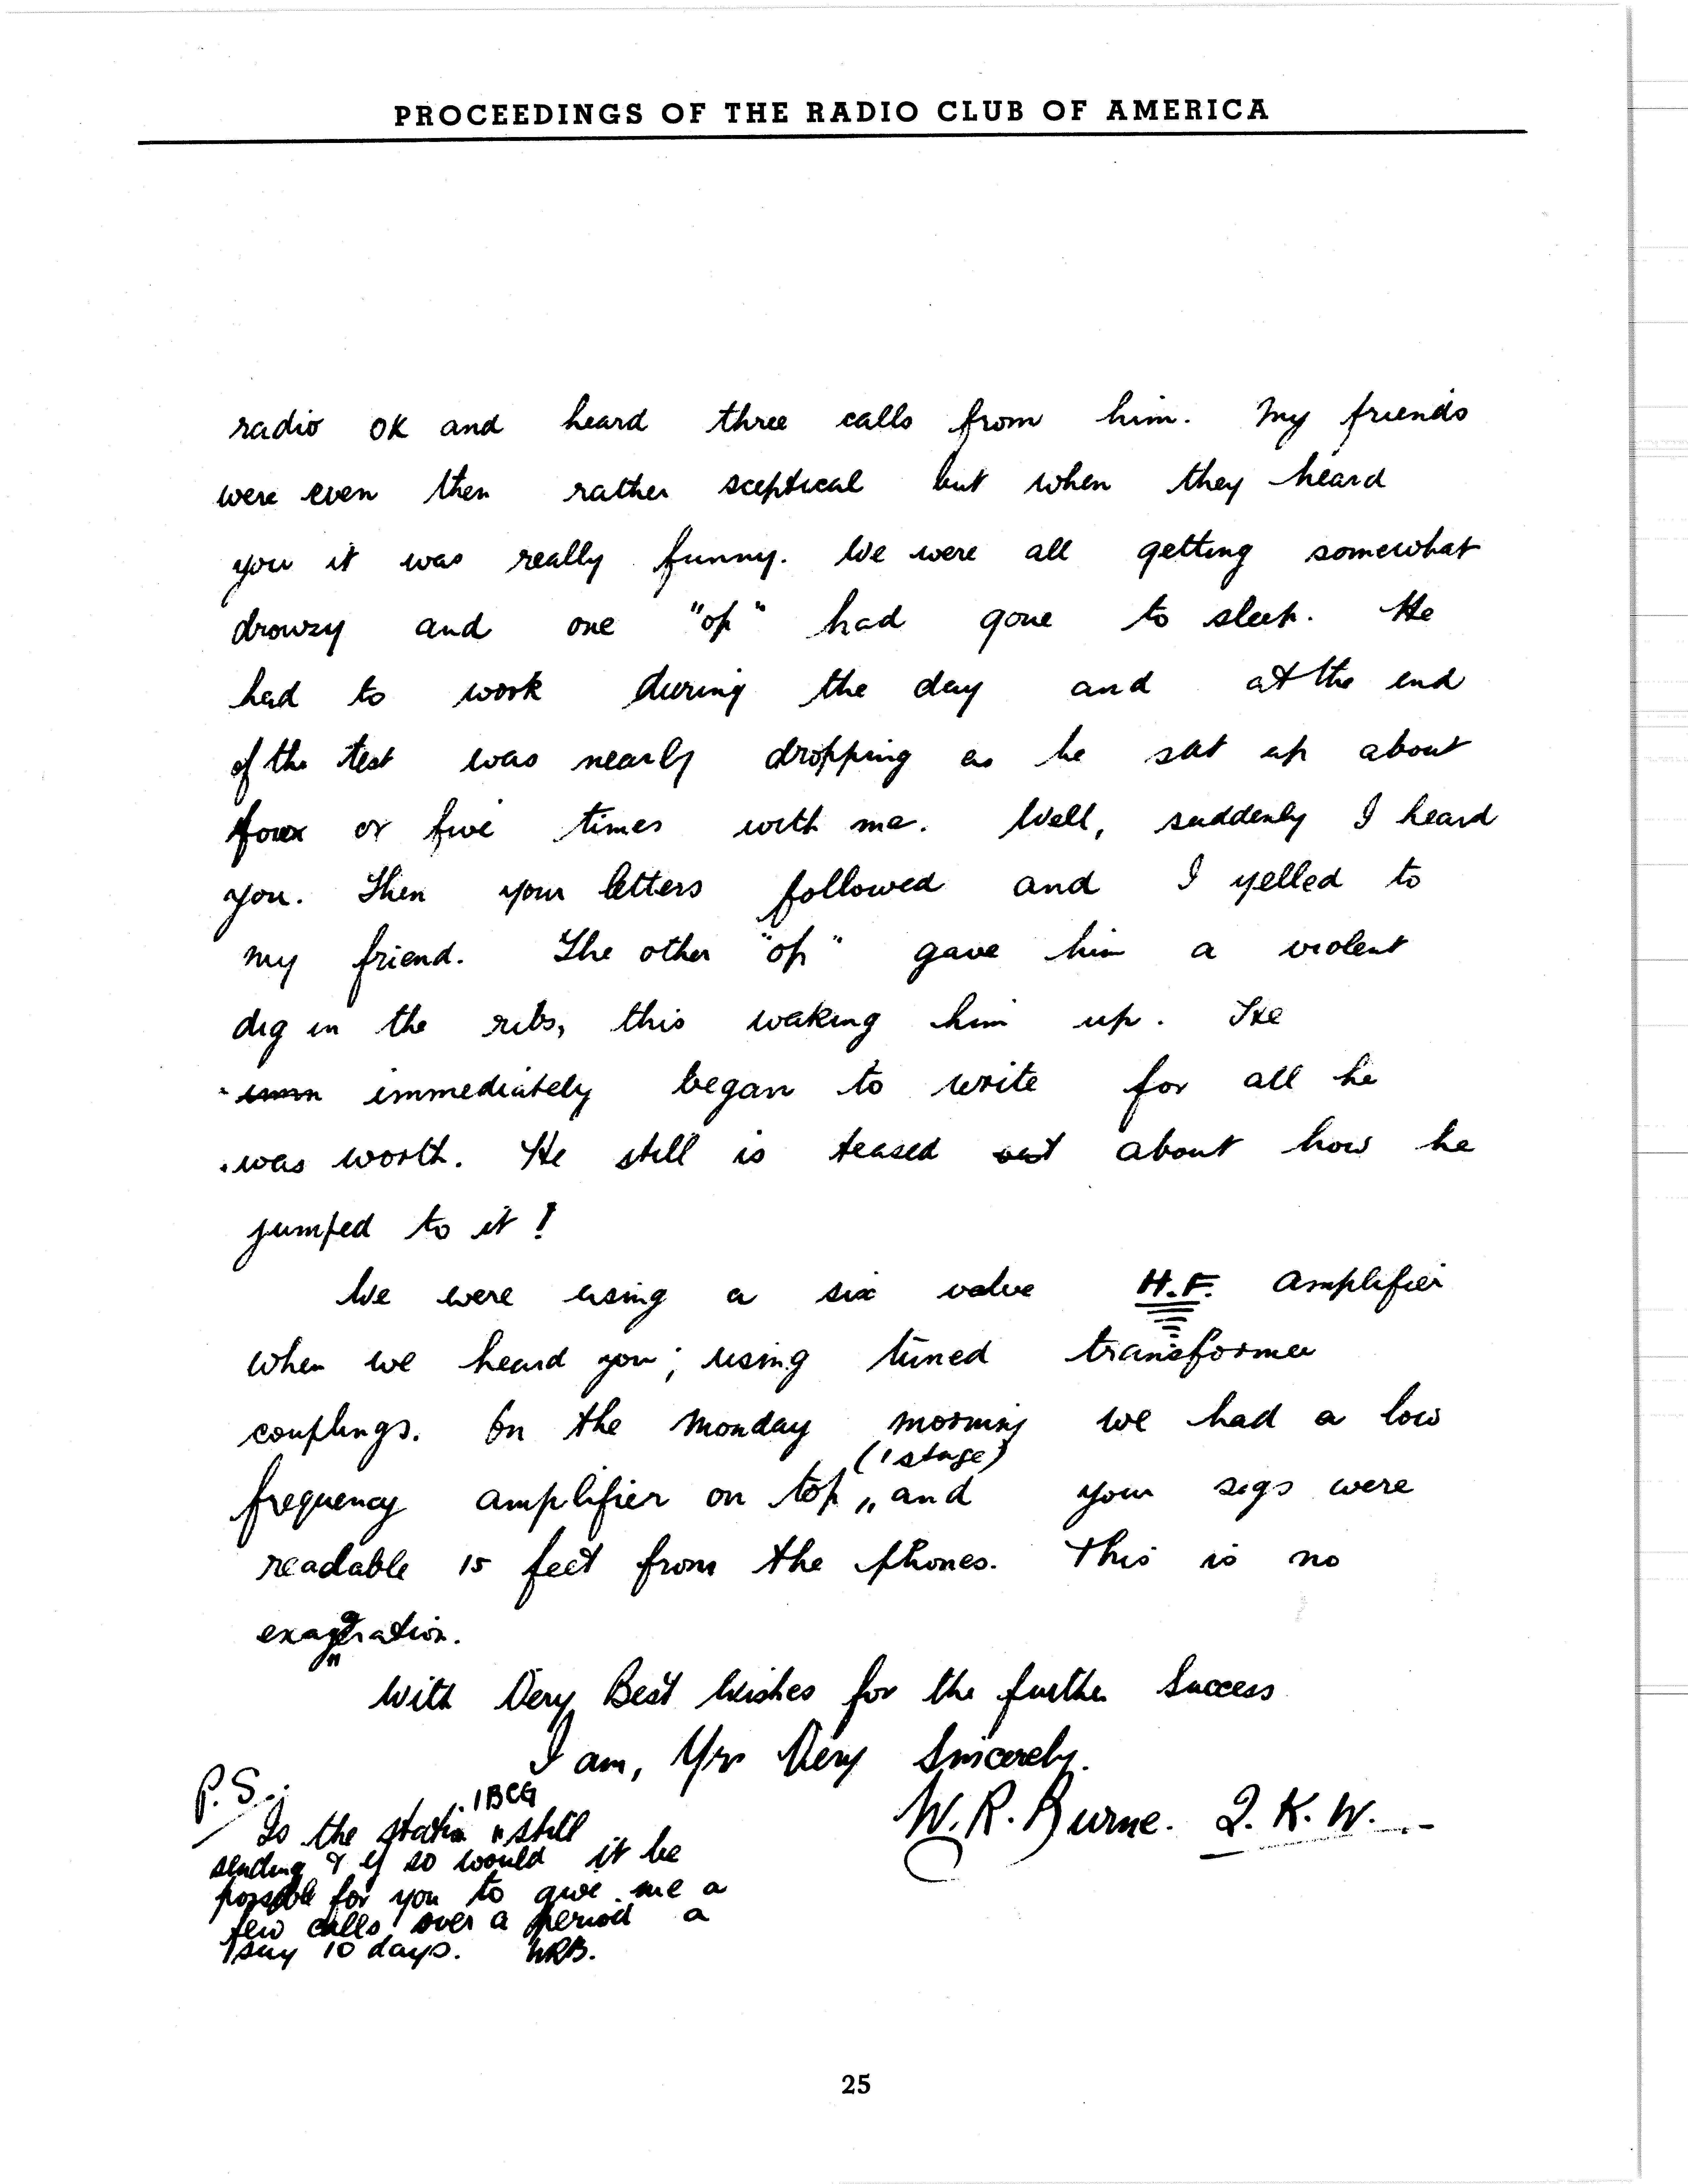 PROCEEDINGS OF THE RADIO CLUB OF AMERICA
radio OK and heard three calls from him. My friends
were even then rather sceptical but when they heard
you it was really funny. We were all getting somewhat
drowzy and one "op" had gone to sleep. He
had to work during the day and at the end
of the test was nearly dropping as he sat up about
four or five times with me. Well, suddenly I heard
you. Then your letters followed and I yelled to
my friend. The other "op" gave him a violent
dig in the ribs, this waking him up. He
imm immediately began to write for all he
was worth. He still is teased out about how he
jumped to it!
We were using a six valve H.F. amplifier
when we heard you; using tuned transformer
couplings. On the Monday morning we had a low
(1 stage)
frequency amplifier on top „ and your sigs were
readable 15 feet from the phones. This is no
exaggeration.
With Very Best Wishes for the further Success
I am, Yrs Very Sincerely.
W.R. Burne. 2.K.W.
P.S.:
1BCG
Is the station „ still
sending & if so would it be
possible for you to give me a
few calls over a period a
say 10 days. WRB.
25